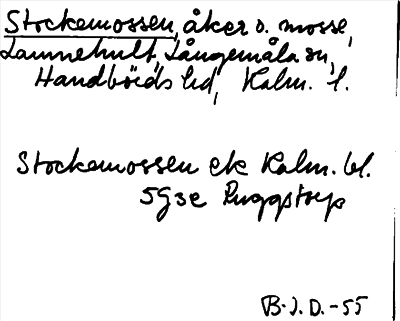 Stockemossen, åker o. mosse,
Lamnehult, Långemåla sn,
Handbörds hd, Kalm. l.
Stockemossen ek Kalm. bl.
5G3e Ruggstorp
B.J.D.-55